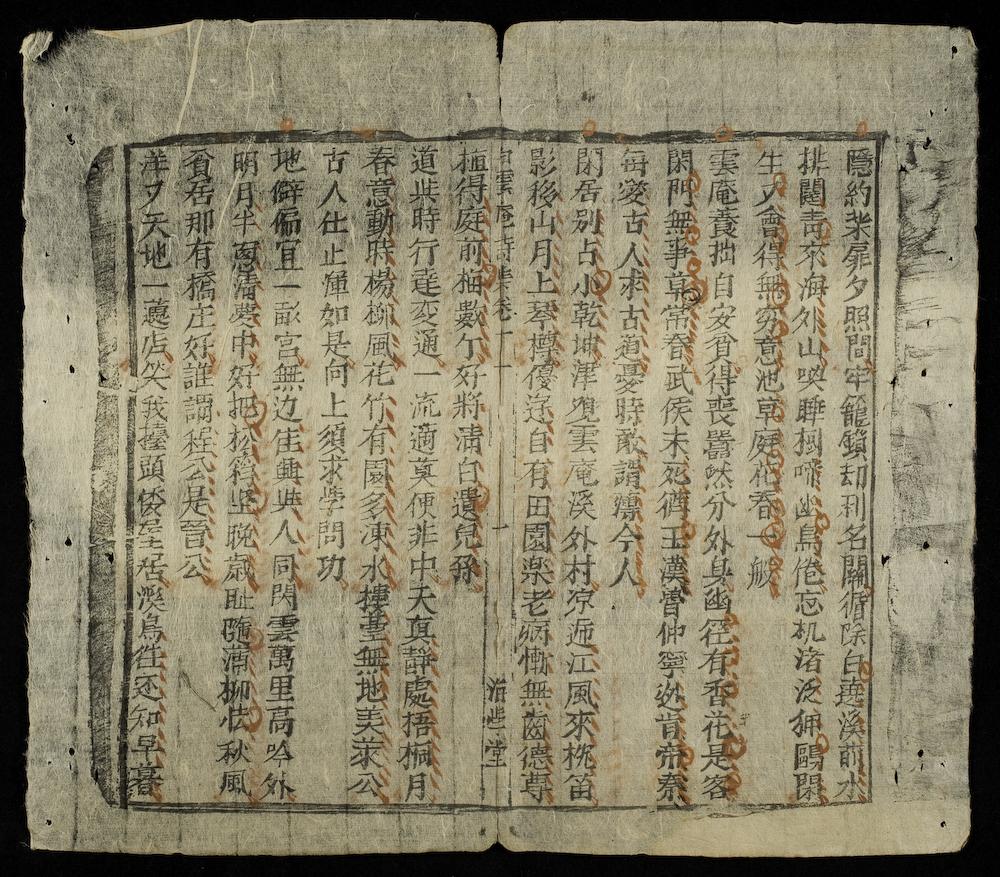 隱約柴扉夕照間牢籠鎖却利名關循除白遶溪前水
排闥靑來海外山喚睡樹啼幽鳥倦忘机渚泛狎鷗閑
生人會得無穷意池草庭花春一般
雲庵養拙自安貧得丧嚣然分外身幽径有香花是客
閑門無事草常春武侯未死猶王漢魯仲寧逃肯帝秦
每変古人求古道憂時敢謂嫖今人
閑居别占小乾坤津邊雲庵溪外村凉迊江風來枕笛
影移山月上琴樽優逰自有田園楽老病慚無齒德尊
植得庭前梅數亇好將清白遺児孫
雲庵詩集卷一 一 治燕堂
道與時行達変通一流適莫便非中天眞靜處梧桐月
春意動時楊柳風花竹有園多凍水樓臺無地美萊公
古人仕止渾如是向上須求學問功
地僻偏宜一畝宮無边佳興與人同閑雲萬里高吟外
明月半窓淸夢中好把松篁坚晚歳耻隨蒲柳怯秋風
貧居那有橋庄好誰謂程公是晉公
洋ヌ天地一蘧店笑我擡頭倭屋居溪鳥徃还知早暮